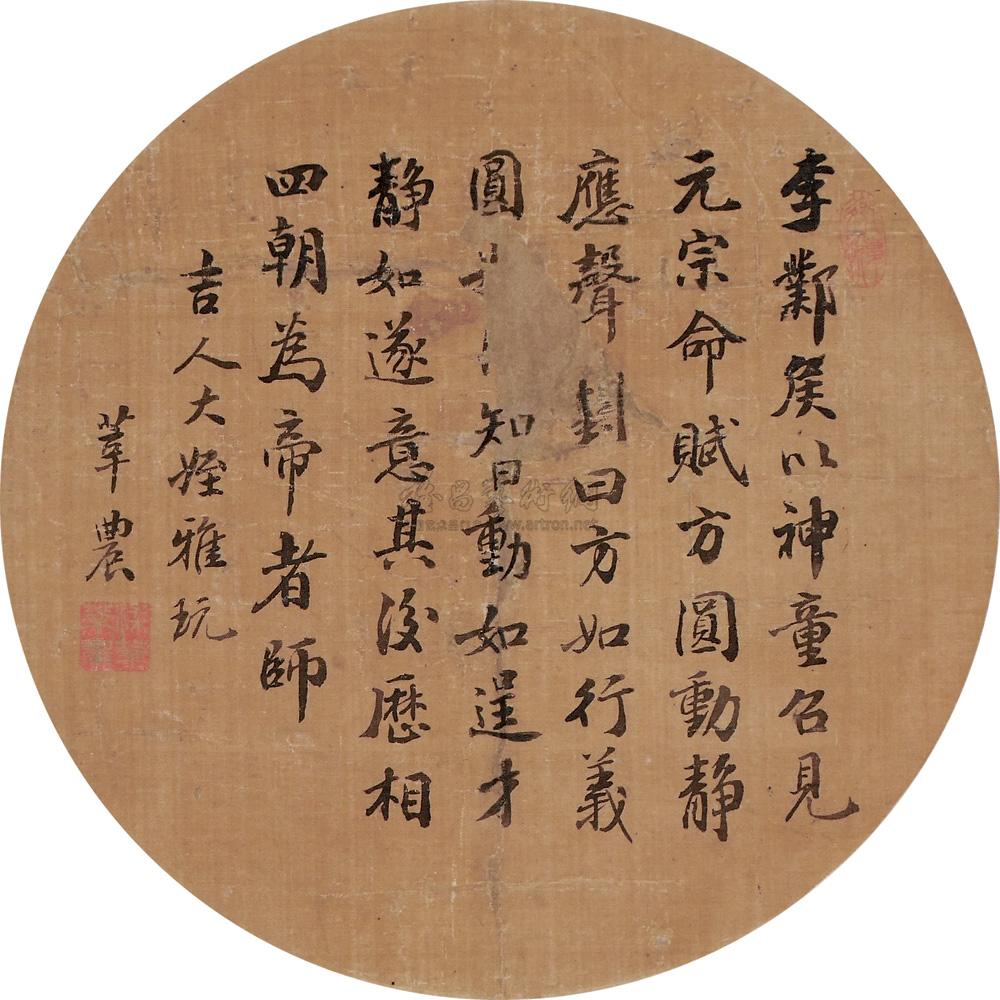 李酇侯以神童召見
元宗命賦方圓動靜
應聲對曰方如行義
圓 知曰動如逞才
靜如遂意其後歷相
四朝為帝者師
吉人大姪雅玩
莘農
www.artron.net